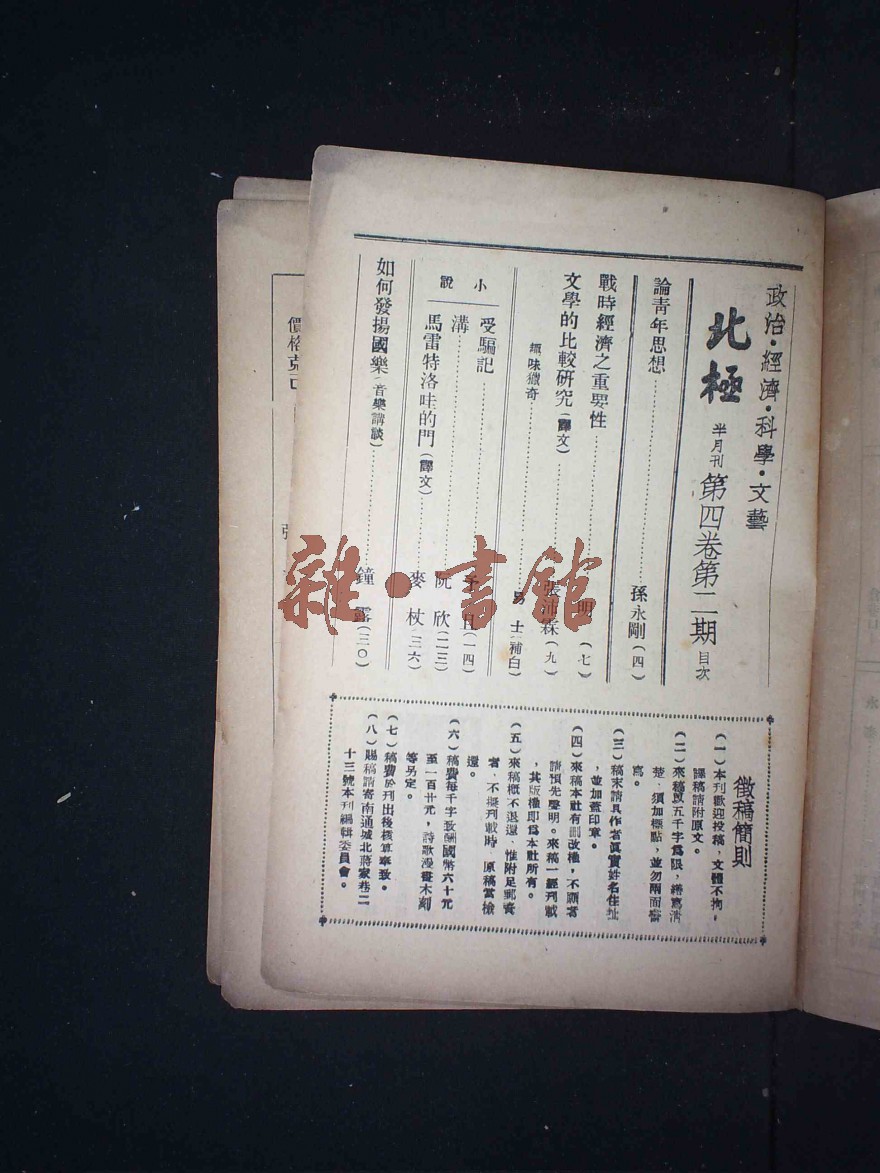 政治·經濟·科學·文藝
北極 半月刊 第四卷第二期 目次
論靑年思想 孫永剛(四)
戰時經濟之重要性 明(七)
文學的比較硏究(譯文) 張沛霖(九)
趣味獵奇 易士(補白)
小說
受騙記 予且(一四)
溝 阮欣(二三)
馬雷特洛哇的門(譯文) 麥杖(三六)
如何發揚國樂(音樂講談) 鐘露(三〇)
徵稿簡則
(一)本刊歡迎投稿,文體不拘,
譯稿請附原文。
(二)來稿以五千字爲限,繕寫淸
楚,須加標點,並勿兩面書
寫。
(三)稿末請具作者眞實姓名住址
,並加蓋印章。
(四)來稿本社有刪改權,不願者
請預先聲明。來稿一經刊載
,其版權卽爲本社所有。
(五)來稿槪不退還、惟附足郵資
者、不擬刊載時、原稿當檢
還。
(六)稿費每千字致酬國幣六十元
至一百廿元,詩歌漫畫木刻
等另定。
(七)稿費於刊出後核算奉致。
(八)賜稿請寄南通城北蔣家巷二
十三號本刊編輯委員會。
價格克己
雜·書館